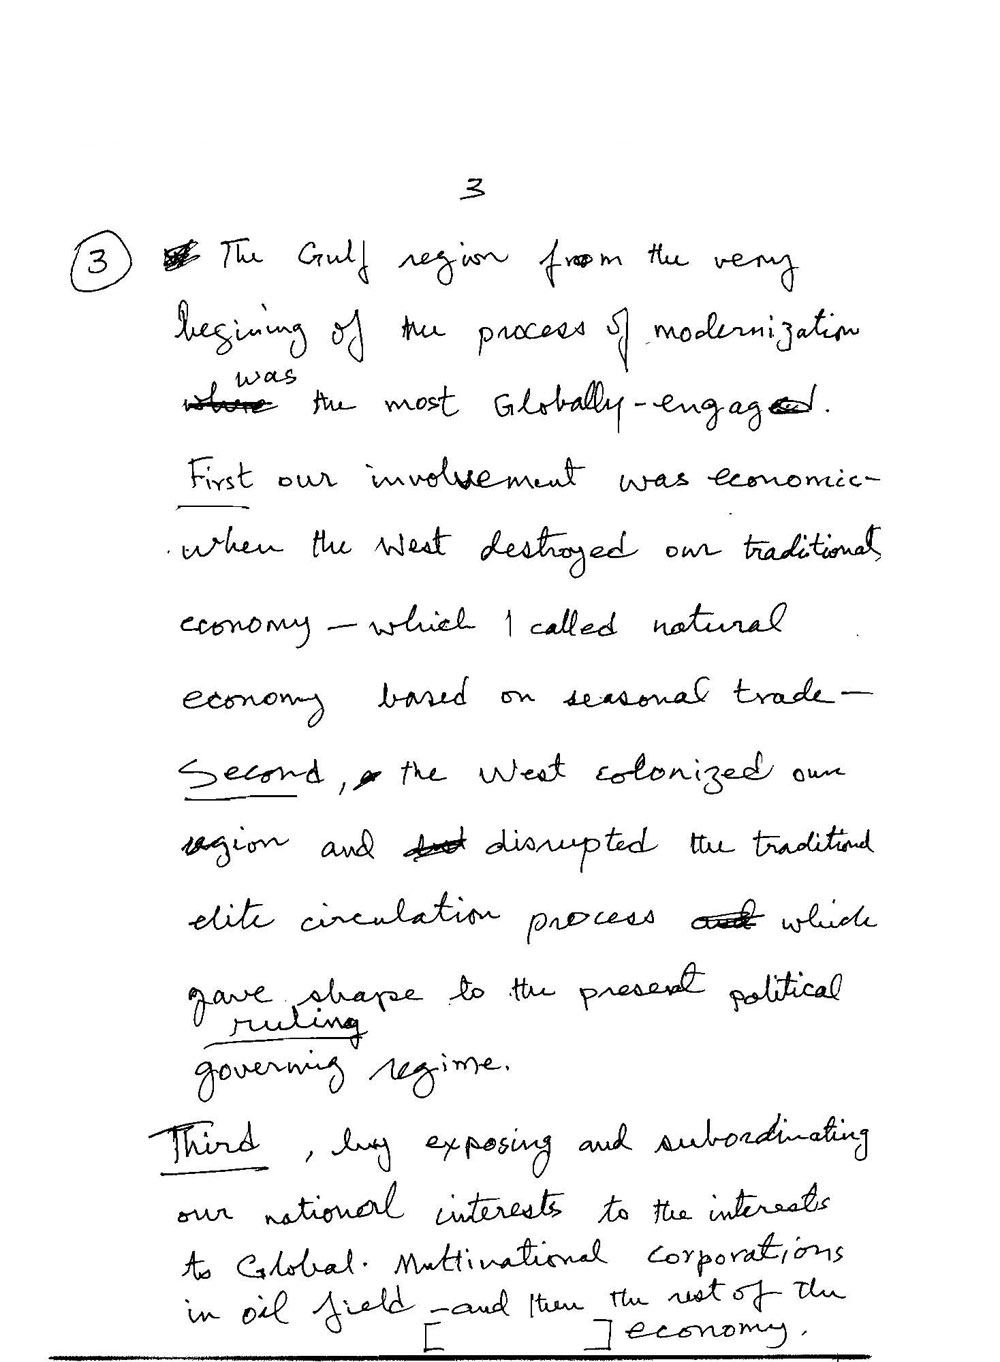 3
③ The Gulf region from the very
begining of the process of modernization
was
where the most Globally-engaged.
First our involvement was economic-
when the West destroyed our traditional
economy — which I called natural
economy based on seasonal trade —
Second, the West colonized our
region and disrupted the traditional
elite circulation process and which
gave shape to the present political
ruling
governing regime.
Third, by exposing and subordinating
our national interests to the interests
to Global. Multinational corporations
in oil field - and then the rest of the
[ ] economy.